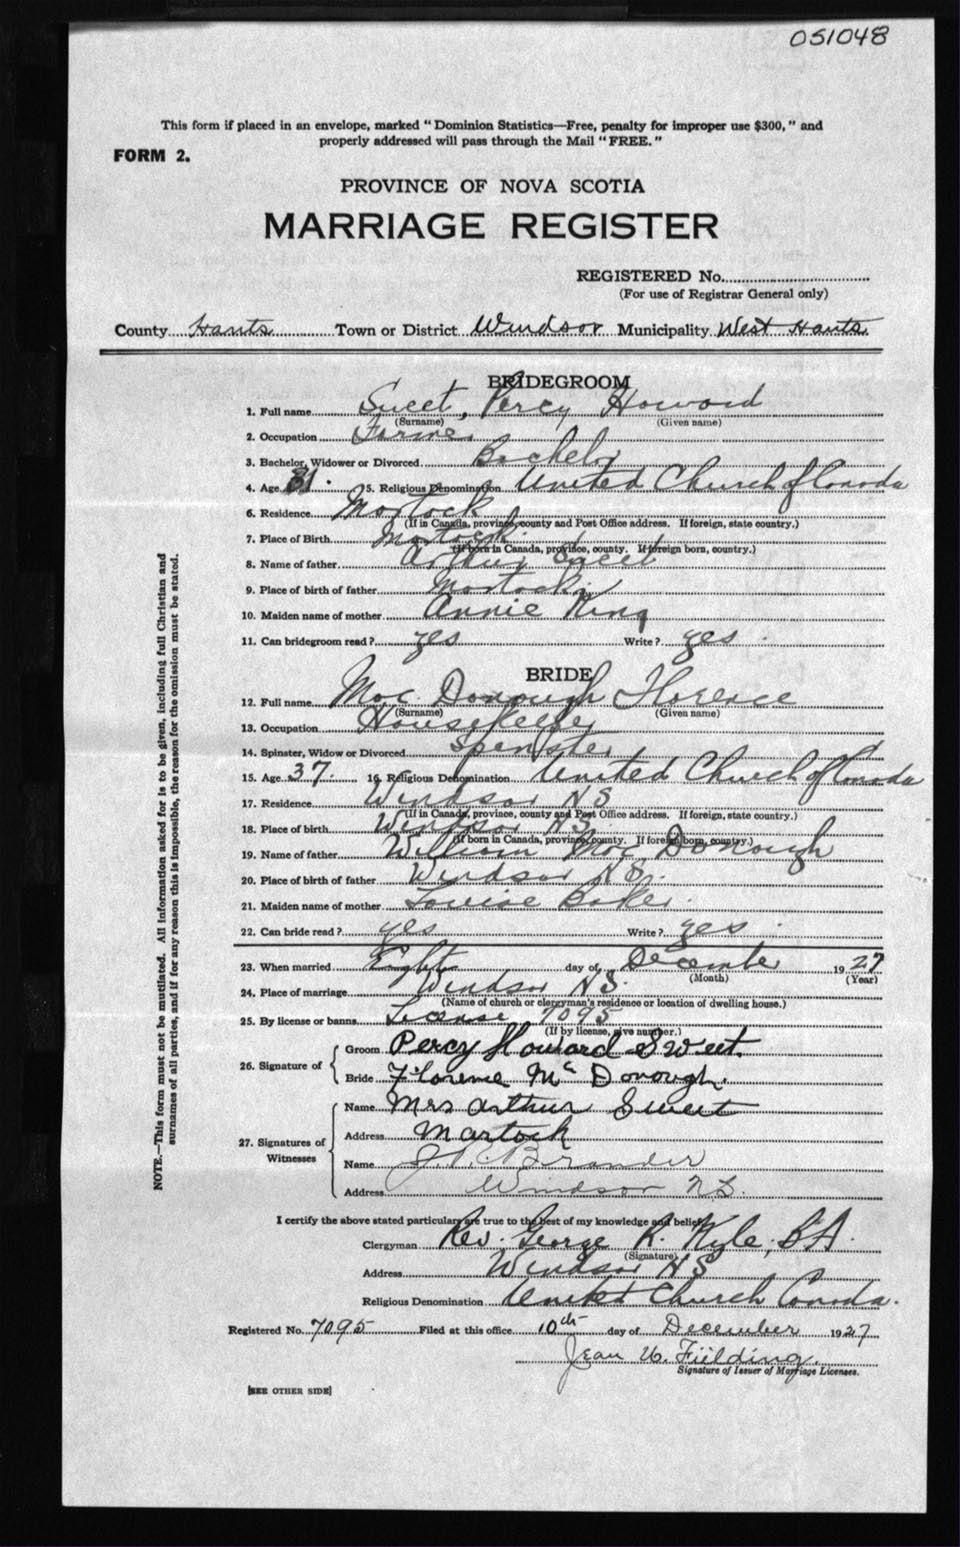 051048
This form if placed in an envelope, marked "Dominion Statistics—Free, penalty for improper use $300," and
properly addressed will pass through the Mail "FREE."
FORM 2.
PROVINCE OF NOVA SCOTIA
MARRIAGE REGISTER
REGISTERED No.
(For use of Registrar General only)
County Hants Town or District Windsor Municipality West Hants
BRIDEGROOM
1. Full name Sweet, Percy Howard
(Surname) (Given name)
2. Occupation Farmer
3. Bachelor, Widower or Divorced Bachelor
4. Age 31. 5. Religious Denomination United Church of Canada
6. Residence Martock
(If in Canada, province, county and Post Office address. If foreign, state country.)
7. Place of Birth Martock
(If born in Canada, province, county. If foreign born, country.)
8. Name of father Arthur Sweet
9. Place of birth of father Martock
10. Maiden name of mother Annie King
11. Can bridegroom read? yes Write? yes
BRIDE
12. Full name Mac Donough Florence
(Surname) (Given name)
13. Occupation Housekeeper
14. Spinster, Widow or Divorced Spinster
15. Age 37. 16. Religious Denomination United Church of Canada
17. Residence Windsor N S
(If in Canada, province, county and Post Office address. If foreign, state country.)
18. Place of birth Windsor N S.
(If born in Canada, province, county. If foreign born, country.)
19. Name of father William Mac Donough
20. Place of birth of father Windsor N S.
21. Maiden name of mother Louise Baker
22. Can bride read? yes Write? yes
23. When married Eight day of December 1927
(Month) (Year)
24. Place of marriage Windsor N S.
(Name of church or clergyman's residence or location of dwelling house.)
25. By license or banns License 7095
(If by license, give number.)
26. Signature of Groom Percy Howard Sweet.
Bride Florence Mc Donough.
27. Signatures of Witnesses Name Mrs Arthur Sweet
Address Martock
Name Brander
Address Windsor N.S.
I certify the above stated particulars are true to the best of my knowledge and belief.
Clergyman Rev. George R. Kyle, B A.
(Signature)
Address Windsor N S
Religious Denomination United Church Canada.
Registered No. 7095 Filed at this office 10th day of December 1927
Jean W. Fielding.
Signature of Issuer of Marriage Licenses.
[SEE OTHER SIDE]
NOTE.—This form must not be mutilated. All information asked for is to be given, including full Christian and
surnames of all parties, and if for any reason this is impossible, the reason for the omission must be stated.